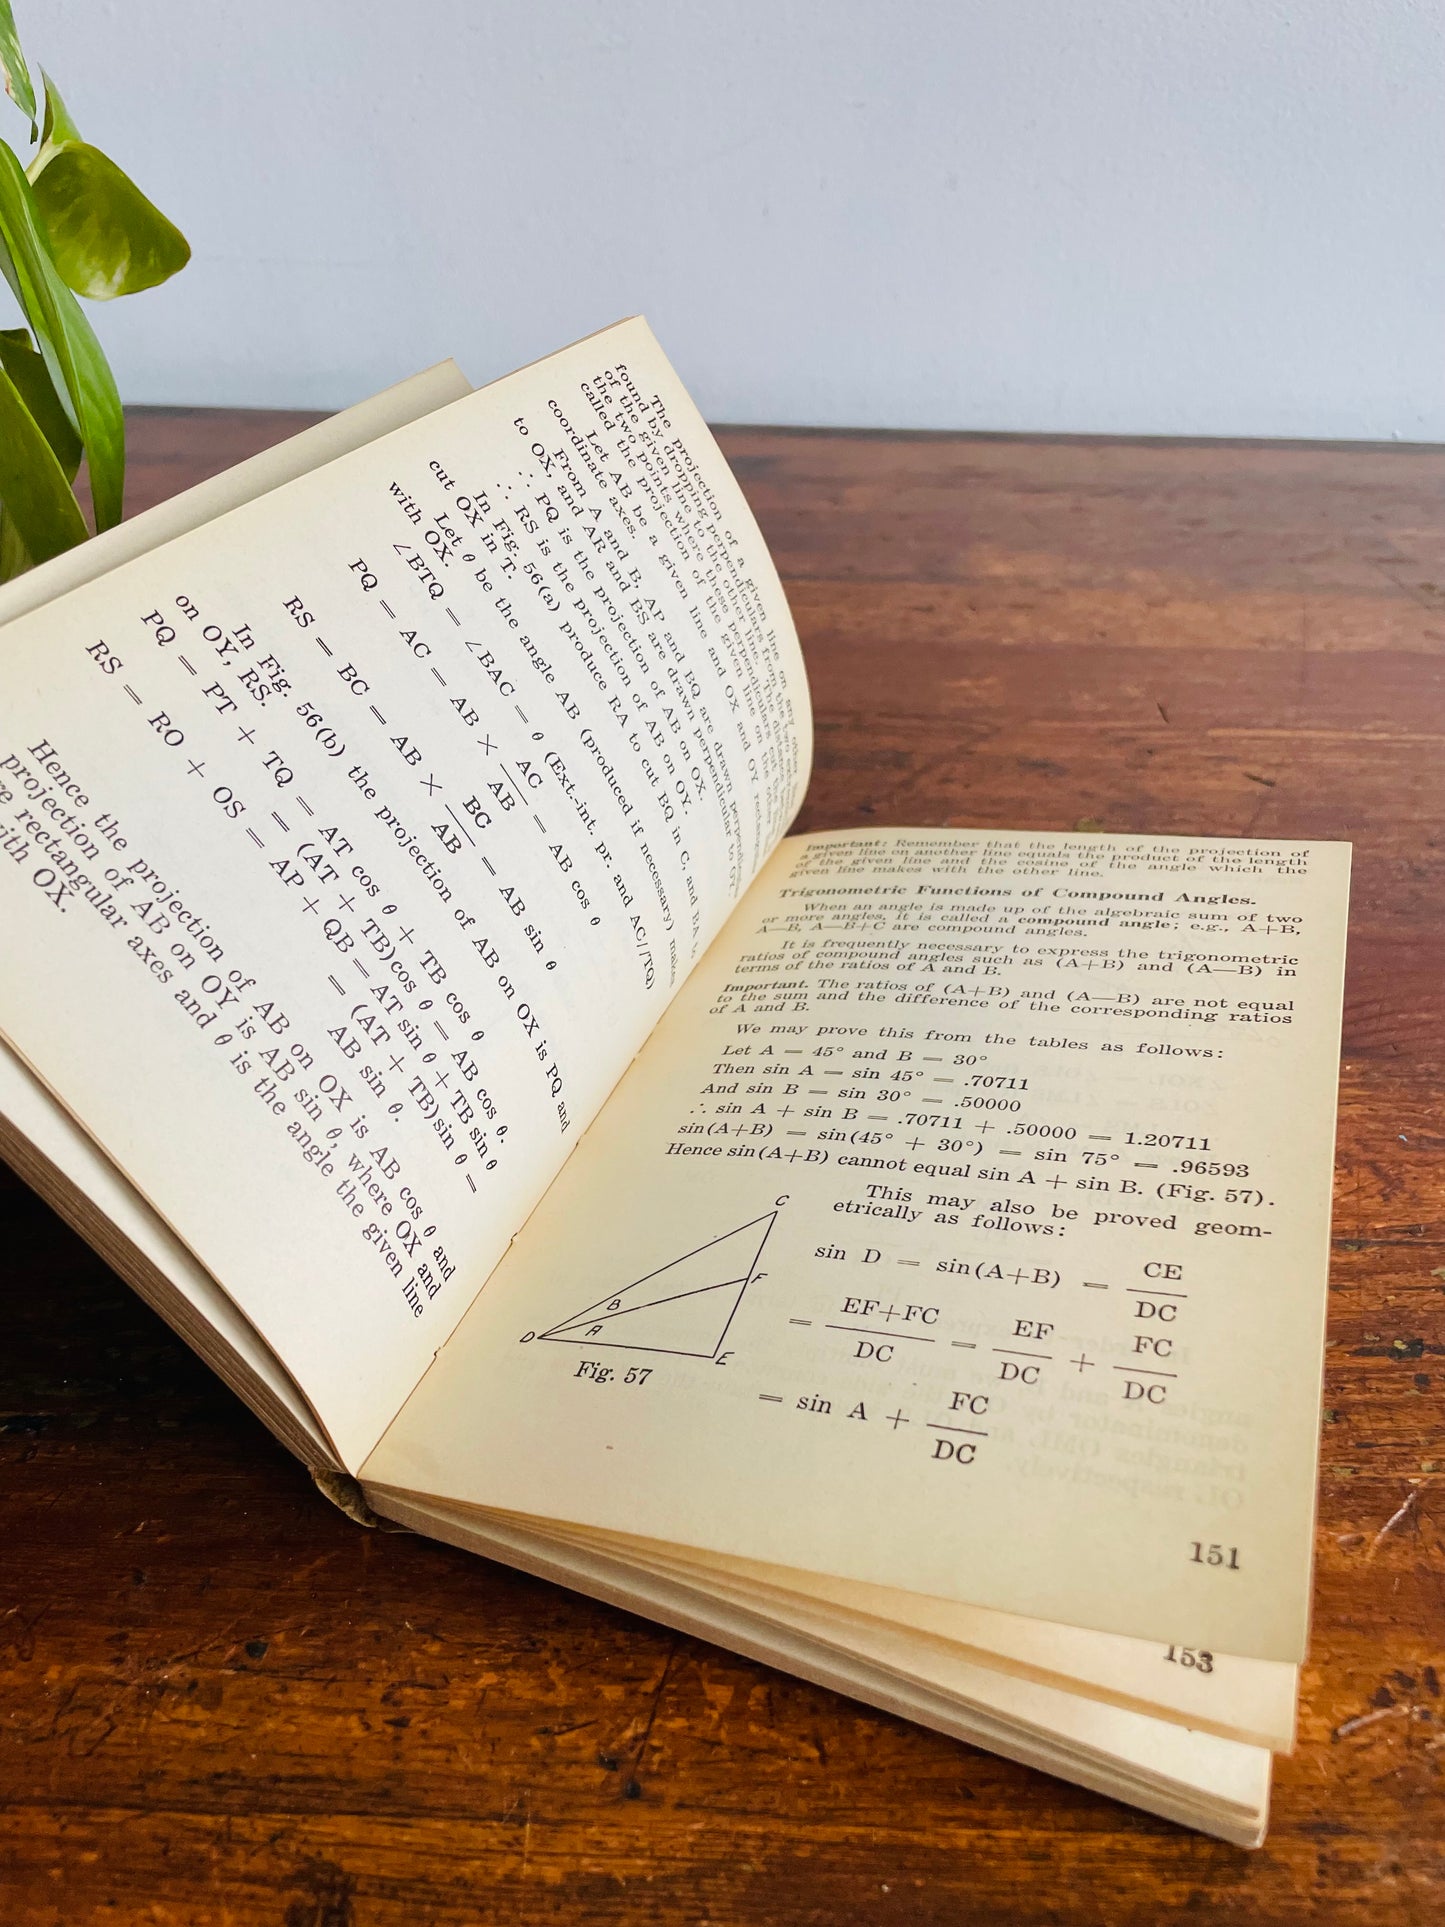 The projection of a given line on any other
found by dropping perpendiculars from the two
of the given line to the other line. The distance
the two points where these perpendiculars cut
called the projection of the given line on the other
Let AB be a given line and OX and OY
coordinate axes.
From A and B, AP and BQ are drawn
to OX, and AR and BS are drawn perpendicular to OY.
∴ PQ is the projection of AB on OX.
∴ RS is the projection of AB on OY.
In Fig. 56(a) produce RA to cut BQ in C, and BA to
cut OX in T.
Let θ be the angle AB (produced if necessary) makes
with OX.
∠BTQ = ∠BAC = θ (Ext.-int. pr. and AC//TQ)
PQ = AC = AB × AC/AB = AB cos θ
RS = BC = AB × BC/AB = AB sin θ
In Fig. 56(b) the projection of AB on OX is PQ and
on OY, RS.
PQ = PT + TQ = AT cos θ + TB cos θ
= (AT + TB)cos θ = AB cos θ.
RS = RO + OS = AP + QB = AT sin θ + TB sin θ
= (AT + TB)sin θ =
AB sin θ.
Hence the projection of AB on OX is AB cos θ and
projection of AB on OY is AB sin θ, where OX and
rectangular axes and θ is the angle the given line
with OX.
Important: Remember that the length of the projection of
a given line on another line equals the product of the length
of the given line and the cosine of the angle which the
given line makes with the other line.
Trigonometric Functions of Compound Angles.
When an angle is made up of the algebraic sum of two
or more angles, it is called a compound angle; e.g., A+B,
A—B, A—B+C are compound angles.
It is frequently necessary to express the trigonometric
ratios of compound angles such as (A+B) and (A—B) in
terms of the ratios of A and B.
Important. The ratios of (A+B) and (A—B) are not equal
to the sum and the difference of the corresponding ratios
of A and B.
We may prove this from the tables as follows:
Let A = 45° and B = 30°
Then sin A = sin 45° = .70711
And sin B = sin 30° = .50000
∴ sin A + sin B = .70711 + .50000 = 1.20711
sin(A+B) = sin(45° + 30°) = sin 75° = .96593
Hence sin(A+B) cannot equal sin A + sin B. (Fig. 57).
This may also be proved geom-
etrically as follows:
sin D = sin(A+B) = CE/DC
= EF+FC/DC = EF/DC + FC/DC
= sin A + FC/DC
C
F
B
A
D
E
Fig. 57
151
153